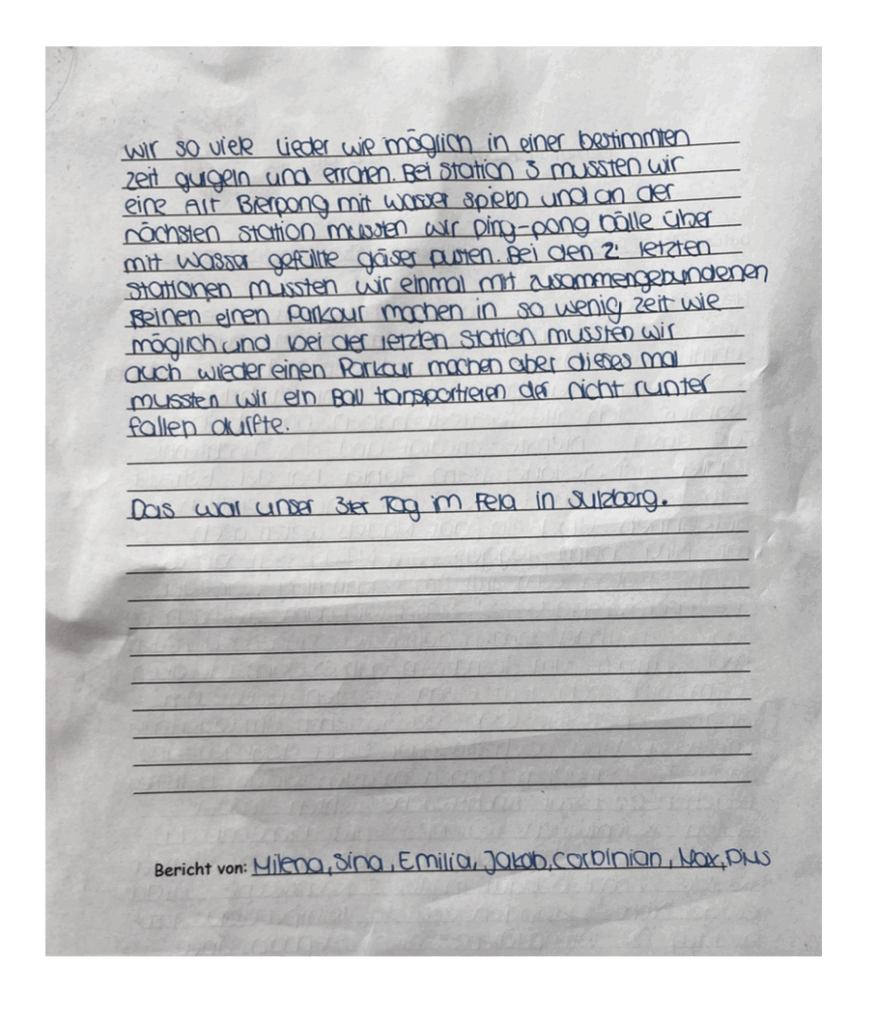 wir so viele Lieder wie möglich in einer bestimmten
zeit gurgeln und erraten. Bei Station 3 mussten wir
eine Art Bierpong mit wasser spielen und an der
nächsten Station mussten wir ping-pong bälle über
mit wasser gefüllte gläser pusten. Bei den 2 letzten
Stationen mussten wir einmal mit zusammengebundenen
Beinen einen Parkour machen in so wenig zeit wie
möglich und bei der letzten Station mussten wir
auch wieder einen Parkour machen aber dieses mal
mussten wir ein Ball tansportieren der nicht runter
fallen durfte.
Das war unser 3ter Tag im Fela in Sulzberg.
Bericht von: Milena, Sina, Emilia, Jakob, Corbinian, Max, Pius